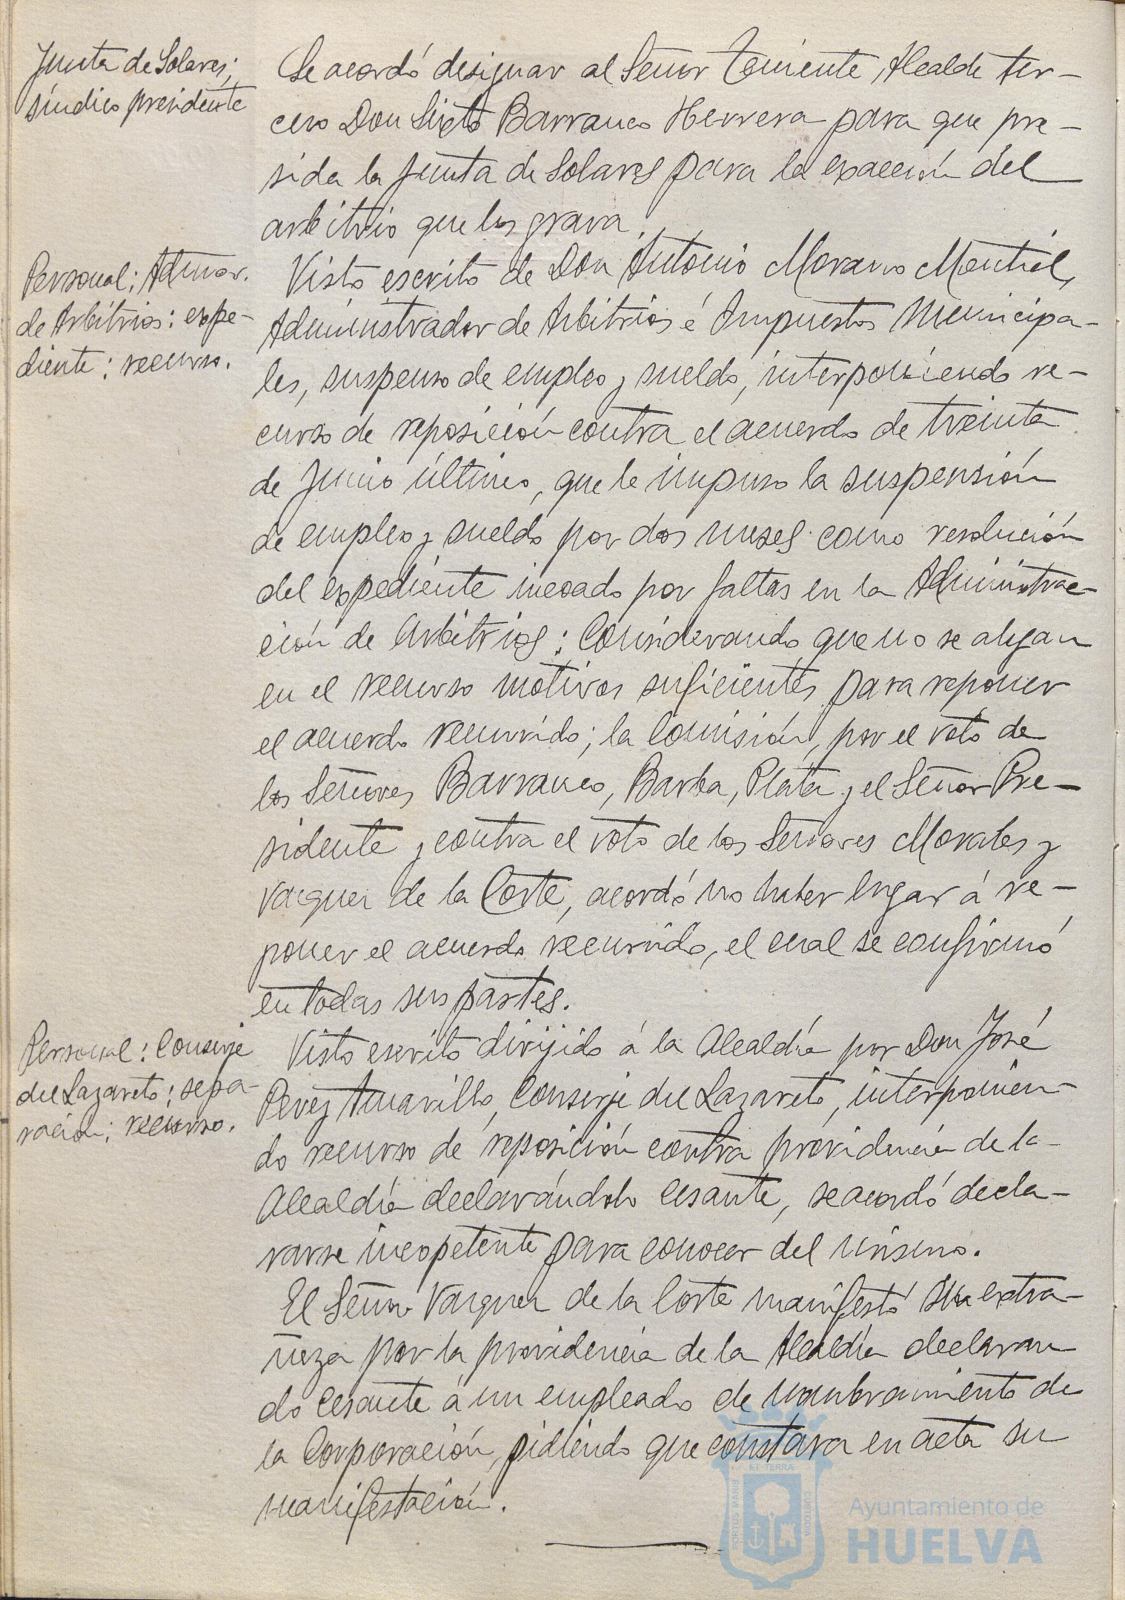 Junta de Solares;
síndico presidente
Se acordó designar al Señor Teniente Alcalde ter-
cero Don Sixto Barranco Herrera para que pre-
sida la Junta de Solares para la exacción del
arbitrio que los grava.
Personal; Admor.
de Arbitrios: expe-
diente; recurso.
Visto escrito de Don Antonio Morano Montiel,
Administrador de Arbitrios é Impuestos Municipa-
les, suspenso de empleo y sueldo, interponiendo re-
curso de reposición contra el acuerdo de treinta
de Junio último, que le impuso la suspensión
de empleo y sueldo por dos meses como resolución
del expediente incoado por faltas en la Administrac-
ción de Arbitrios; Considerando que no se alegan
en el recurso motivos suficientes para reponer
el acuerdo recurrido; la Comisión, por el voto de
los Señores Barranco, Barba, Plata y el Señor Pre-
sidente y contra el voto de los Señores Morales y
Vazquez de la Corte, acordó no haber lugar á re-
poner el acuerdo recurrido, el cual se confirmó
en todas sus partes.
Personal: Conserje
del Lazareto; sepa-
ración; recurso.
Visto escrito dirijido á la Alcaldía por Don José
Perez Amarillo, Conserje del Lazareto, interponien-
do recurso de reposición contra providencia de la
Alcaldía declarándolo cesante, se acordó decla-
rarse incopetente para conocer del mismo.
El Señor Vazquez de la Corte manifestó su extra-
ñeza por la providencia de la Alcaldía declaran
do cesante á un empleado de nombramiento de
la Corporación, pidiendo que constara en acta su
manifestación.
PORTUS MARIS
ET TERRA
CUSTODIA
Ayuntamiento de
HUELVA